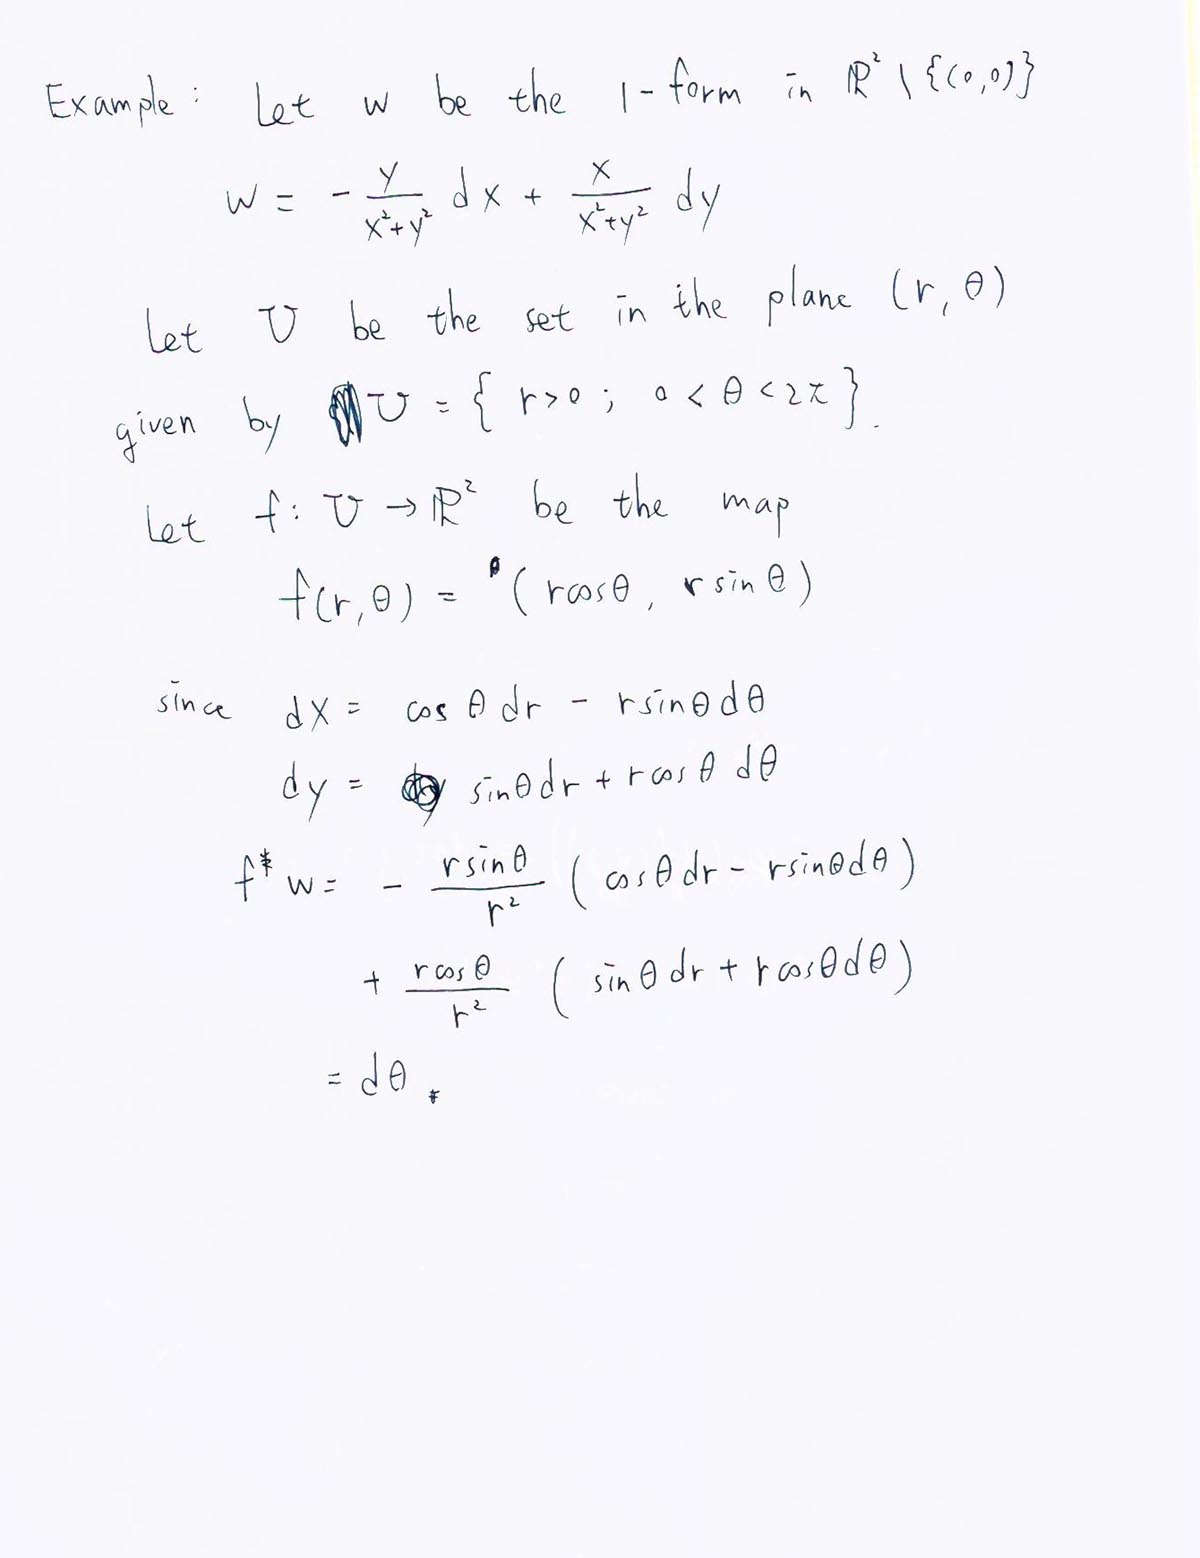 Example: Let w be the 1-form in ℝ² \ {(0,0)}
w = - y/(x²+y²) dx + x/(x²+y²) dy
Let U be the set in the plane (r, θ)
given by U = { r>0 ; 0 < θ < 2π }.
Let f: U → ℝ² be the map
f(r, θ) = (r cos θ, r sin θ)
since dx = cos θ dr - r sin θ dθ
dy = sin θ dr + r cos θ dθ
f* w = - (r sin θ)/r² ( cos θ dr - r sin θ dθ )
+ (r cos θ)/r² ( sin θ dr + r cos θ dθ )
= dθ.